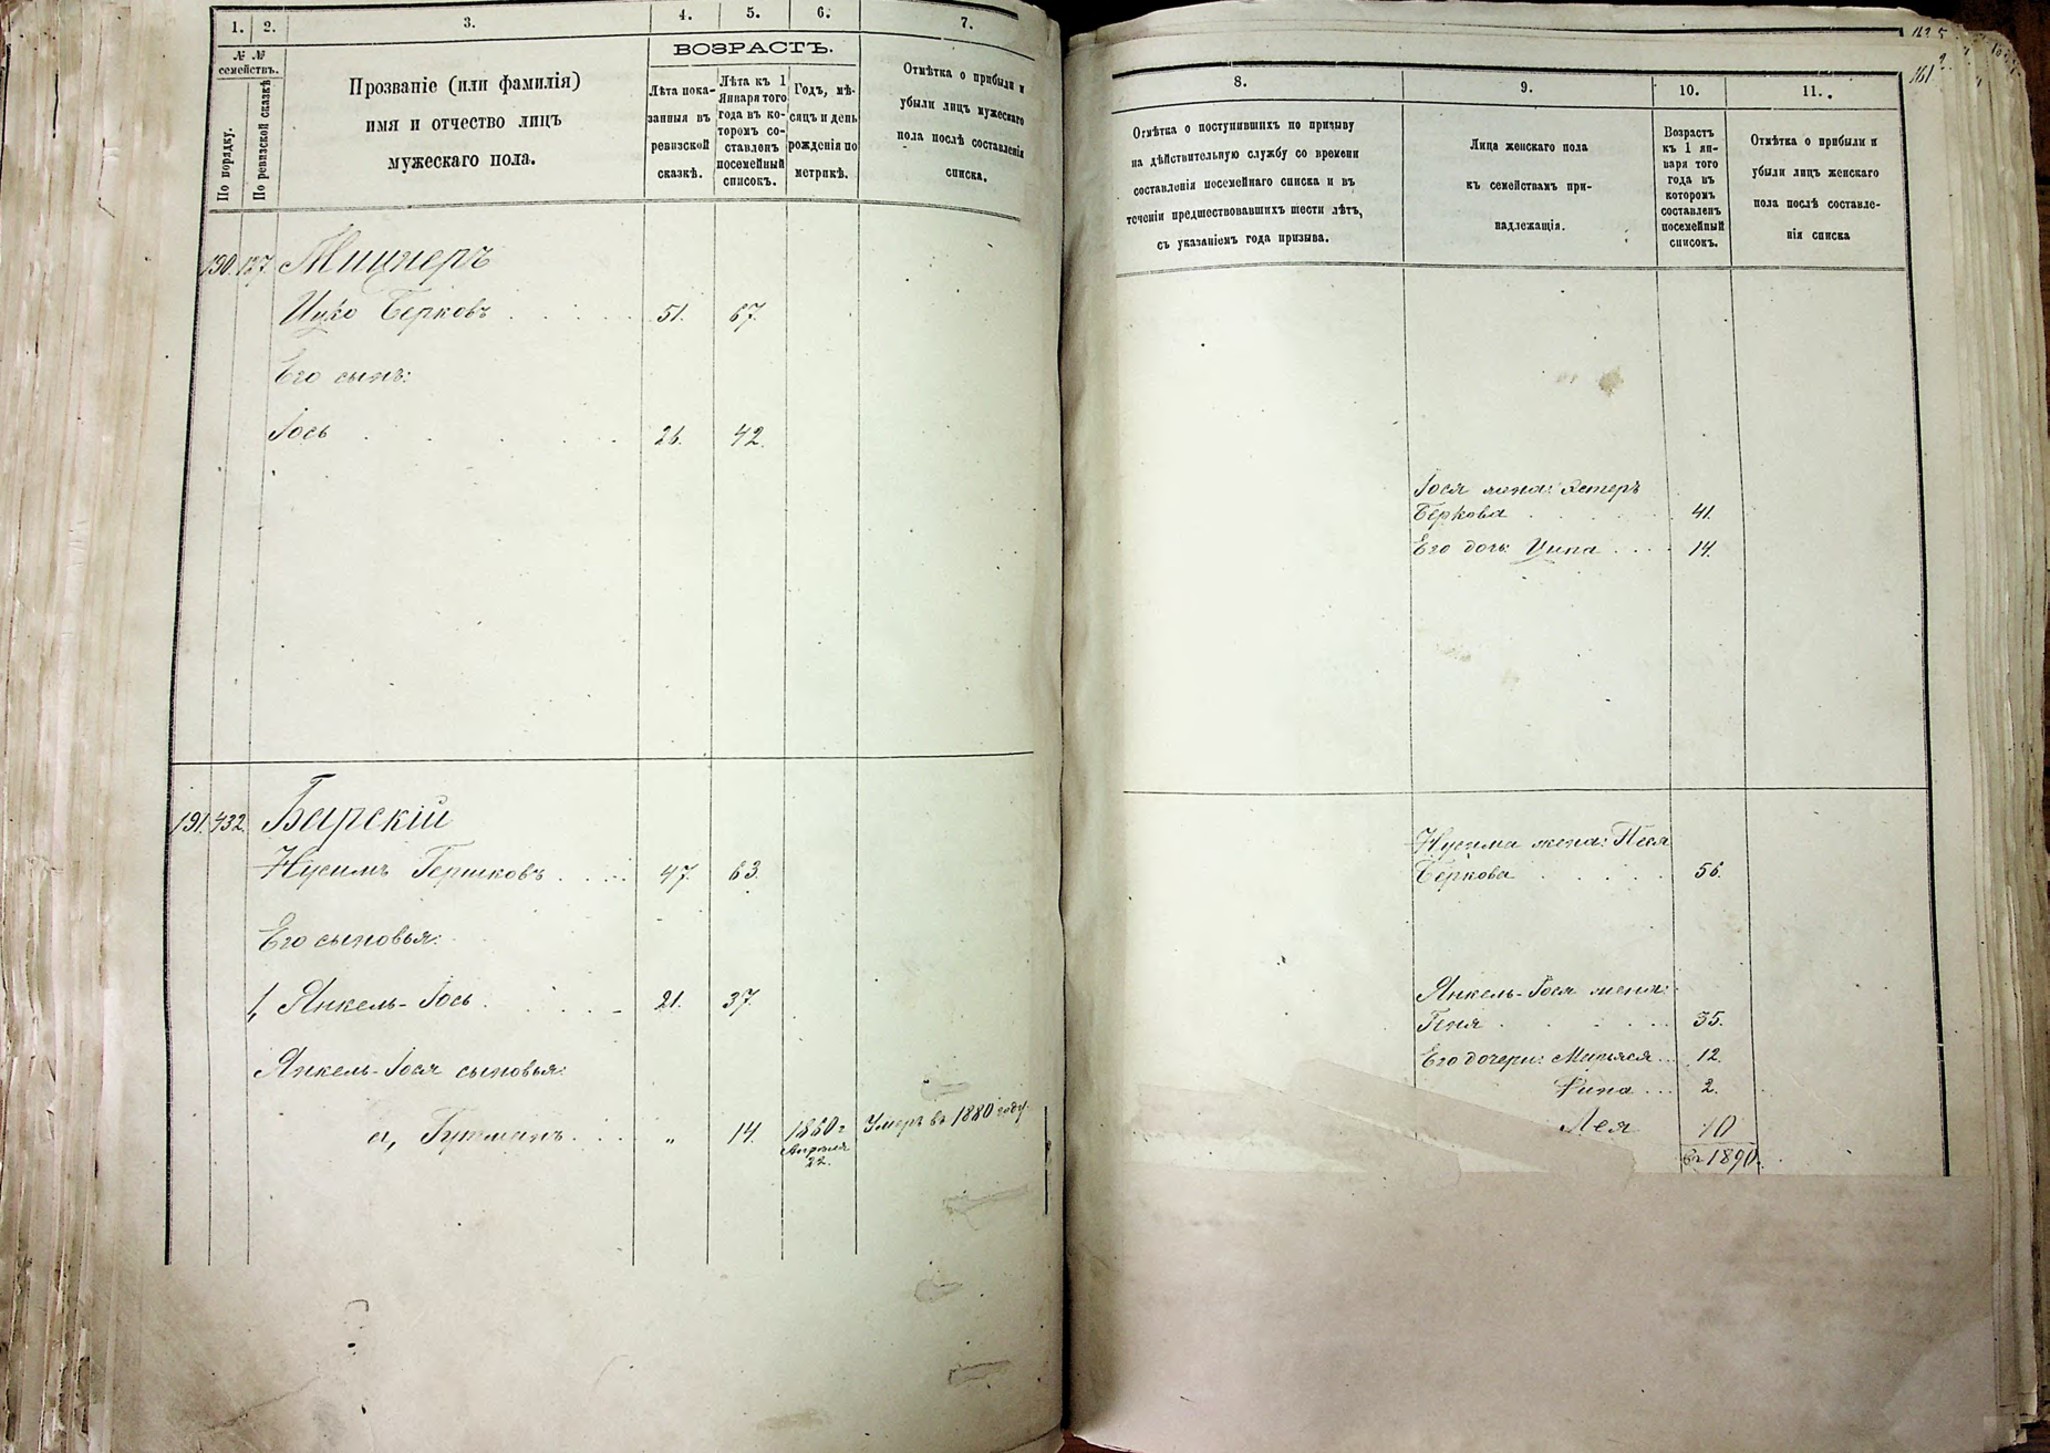 1. 2. 3. 4. 5. 6. 7.
№ №
семействъ.
По порядку.
По ревизской сказкѣ
Прозваніе (или фамилія)
имя и отчество лицъ
мужескаго пола.
ВОЗРАСТЪ.
Лѣта пока-
занныя въ
ревизской
сказкѣ.
Лѣта къ 1
Января того
года въ ко-
торомъ со-
ставленъ
посемейный
списокъ.
Годъ, мѣ-
сяцъ и день
рожденія по
метрикѣ.
Отмѣтка о прибыли и
убыли лицъ мужескаго
пола послѣ составленія
списка.
190. 137. Мицнеръ
Ицко Берковъ 51. 67.
Его сынъ:
Іось 26. 42.
191. 432. Барскій
Нусимъ Гершковъ 47. 63.
Его сыновья:
1, Янкель-Іось 21. 37.
Янкель-Іося сыновья:
а, Гутманъ „ 14. 1860 г. Умеръ въ 1880 году.
Апрѣля
22.
161
8. 9. 10. 11.
Отмѣтка о поступившихъ по призыву
на дѣйствительную службу со времени
составленія посемейнаго списка и въ
теченіи предшествовавшихъ шести лѣтъ,
съ указаніемъ года призыва.
Лица женскаго пола
къ семействамъ при-
надлежащія.
Возрастъ
къ 1 ян-
варя того
года въ
которомъ
составленъ
посемейный
списокъ.
Отмѣтка о прибыли и
убыли лицъ женскаго
пола послѣ составле-
нія списка
Іося жена: Эстеръ
Беркова 41.
Его дочь: Ципа 14.
Нусима жена: Песя
Беркова 56.
Янкель-Іося жена:
Геня 35.
Его дочери: 12.
2.
Лея 10
въ 1890.